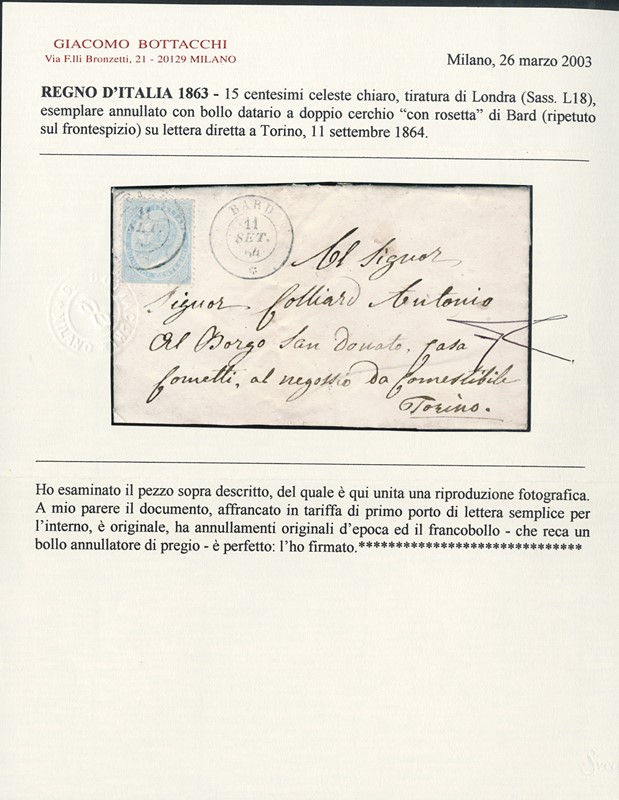 GIACOMO BOTTACCHI
Via F.lli Bronzetti, 21 - 20129 MILANO
Milano, 26 marzo 2003
REGNO D'ITALIA 1863 - 15 centesimi celeste chiaro, tiratura di Londra (Sass. L18),
esemplare annullato con bollo datario a doppio cerchio “con rosetta” di Bard (ripetuto
sul frontespizio) su lettera diretta a Torino, 11 settembre 1864.
11
SET.
BARD
11
SET.
64
Al Signor
Signor Colliard Antonio
Al Borgo San Donato, Casa
Cometti, al negossio da Comestibile
Torino.
MILANO
Ho esaminato il pezzo sopra descritto, del quale è qui unita una riproduzione fotografica.
A mio parere il documento, affrancato in tariffa di primo porto di lettera semplice per
l'interno, è originale, ha annullamenti originali d'epoca ed il francobollo - che reca un
bollo annullatore di pregio - è perfetto: l'ho firmato.******************************